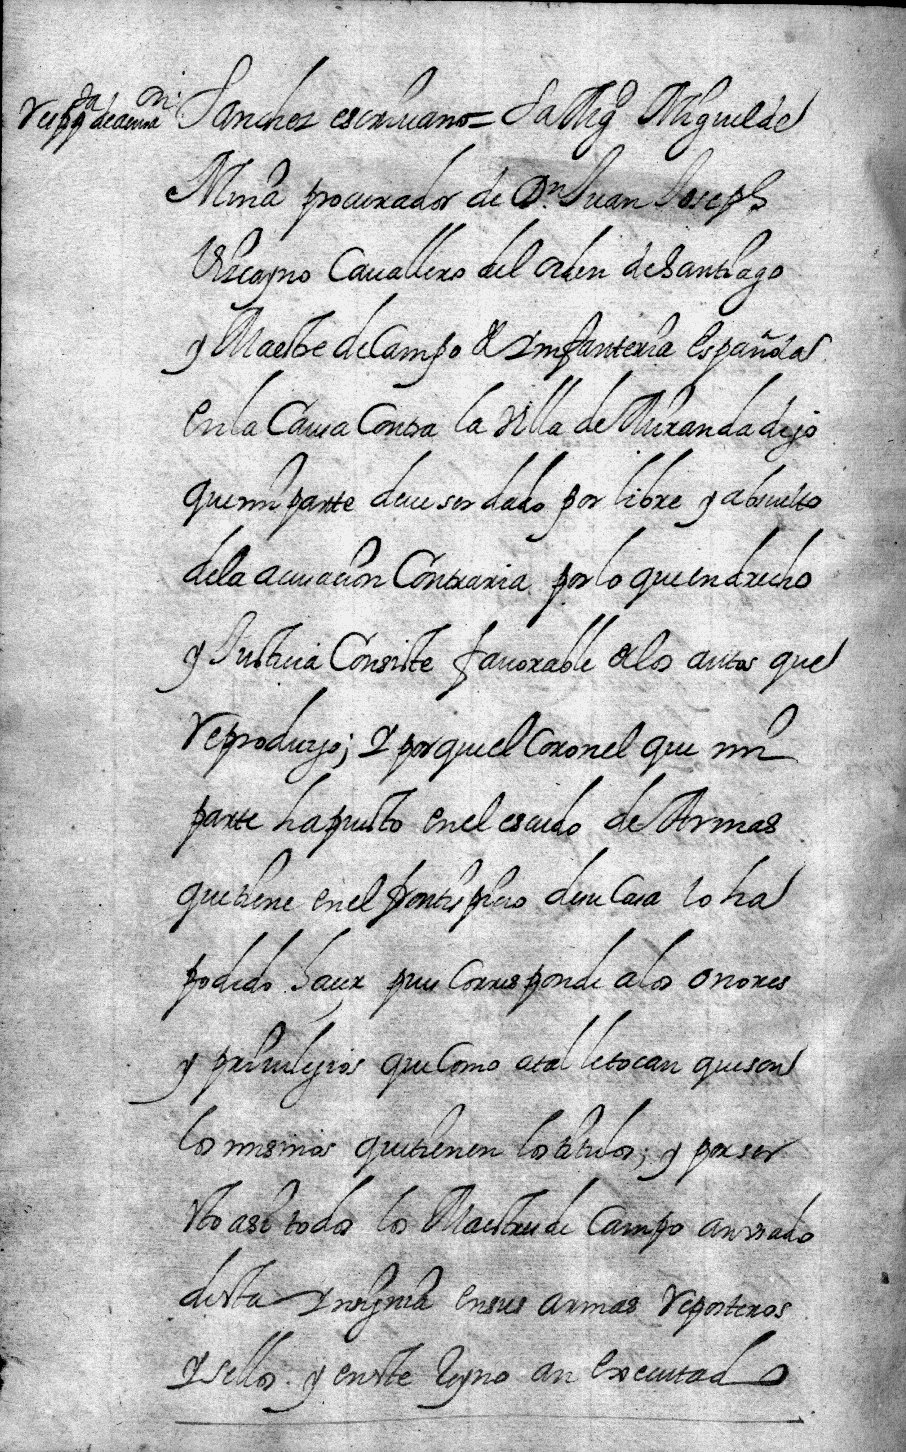 Sanchez escriuano = Sa Mag.d Miguel de
Mina procurador de D.n Juan Joseph
Vizcayno Cauallero del orden de Santiago
y Maestre de Campo de Imfanteria española
en la Causa Contra la Villa de Miranda digo
que mi parte deue ser dado por libre y absuelto
dela acusacion Contraria por lo que en drecho
y Justicia Consiste fauorable de los autos que
reproduzgo; Y porque el Coronel que mi
parte ha puesto en el escudo de Armas
que tiene en el frontispicio de su Casa lo ha
podido hacer pues Corresponde a los onores
y priuilegios que Como a tal le tocan que son
los mismos que tienen los titulos; y por ser
esto asi todos los Maestres de Campo an vsado
desta Insignia en sus armas reposteros
Y sellos. y en este Reyno an executado